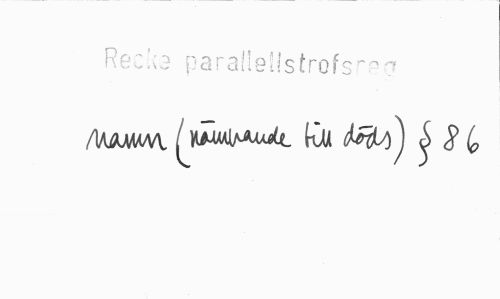 Recke parallellstrofsreg
namn (nämnande till döds) § 86